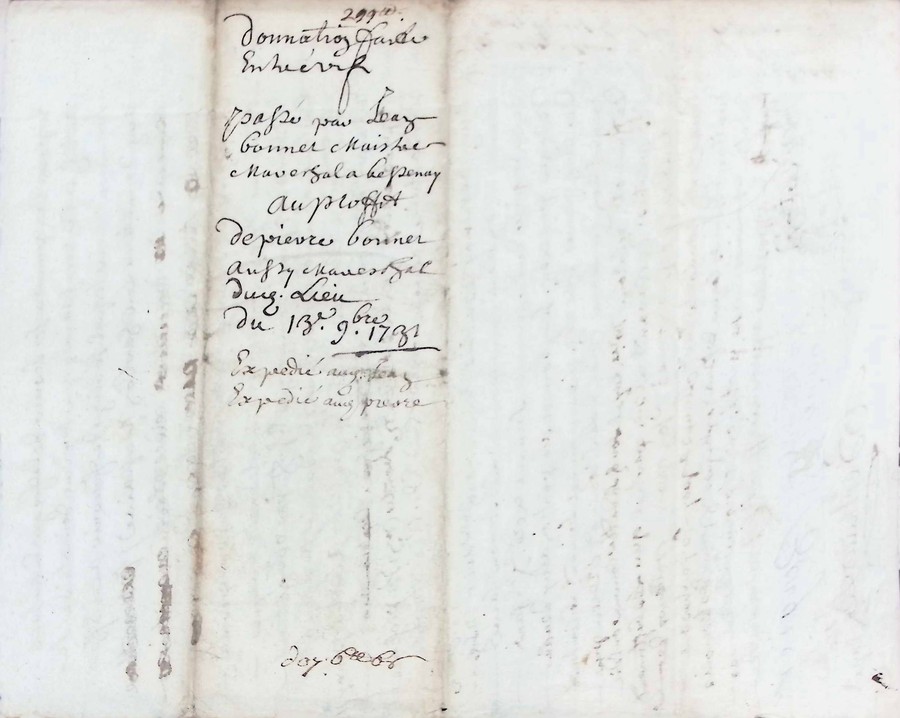 Donnation faite
Entre vif
passé par Jean
bonnet Maistre
Mareschal a bessenay
Au proffit
de pierre bonnet
aussy Mareschal
dud. Lieu
du 13e. 9bre 1731
Expedié aud. Jean
Expedié aud pierre